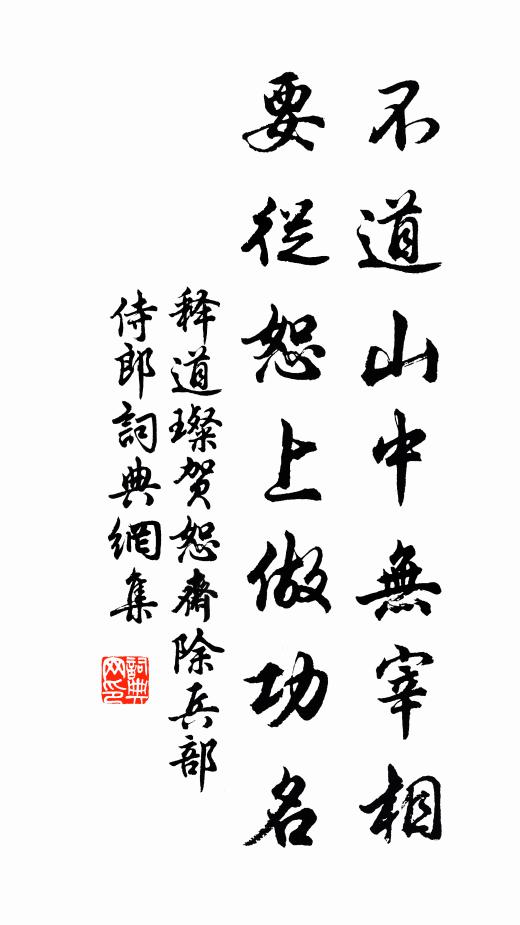 不道山中無宰相
要從恕上做功名
释道璨贺恕齋除兵部
侍郎詞典網集
詞典
网印